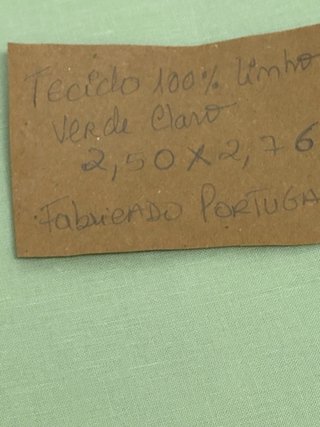 Tecido 100% limho
verde Claro
2,50 x 2,76
Fabricado PORTUGA